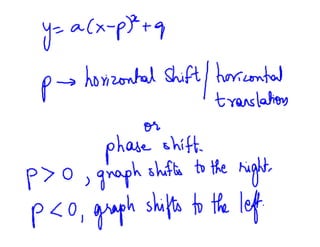 y = a(x-p)²+q
p → horizontal shift / horizontal
translation
or
phase shift.
p > 0, graph shifts to the right.
p < 0, graph shifts to the left.